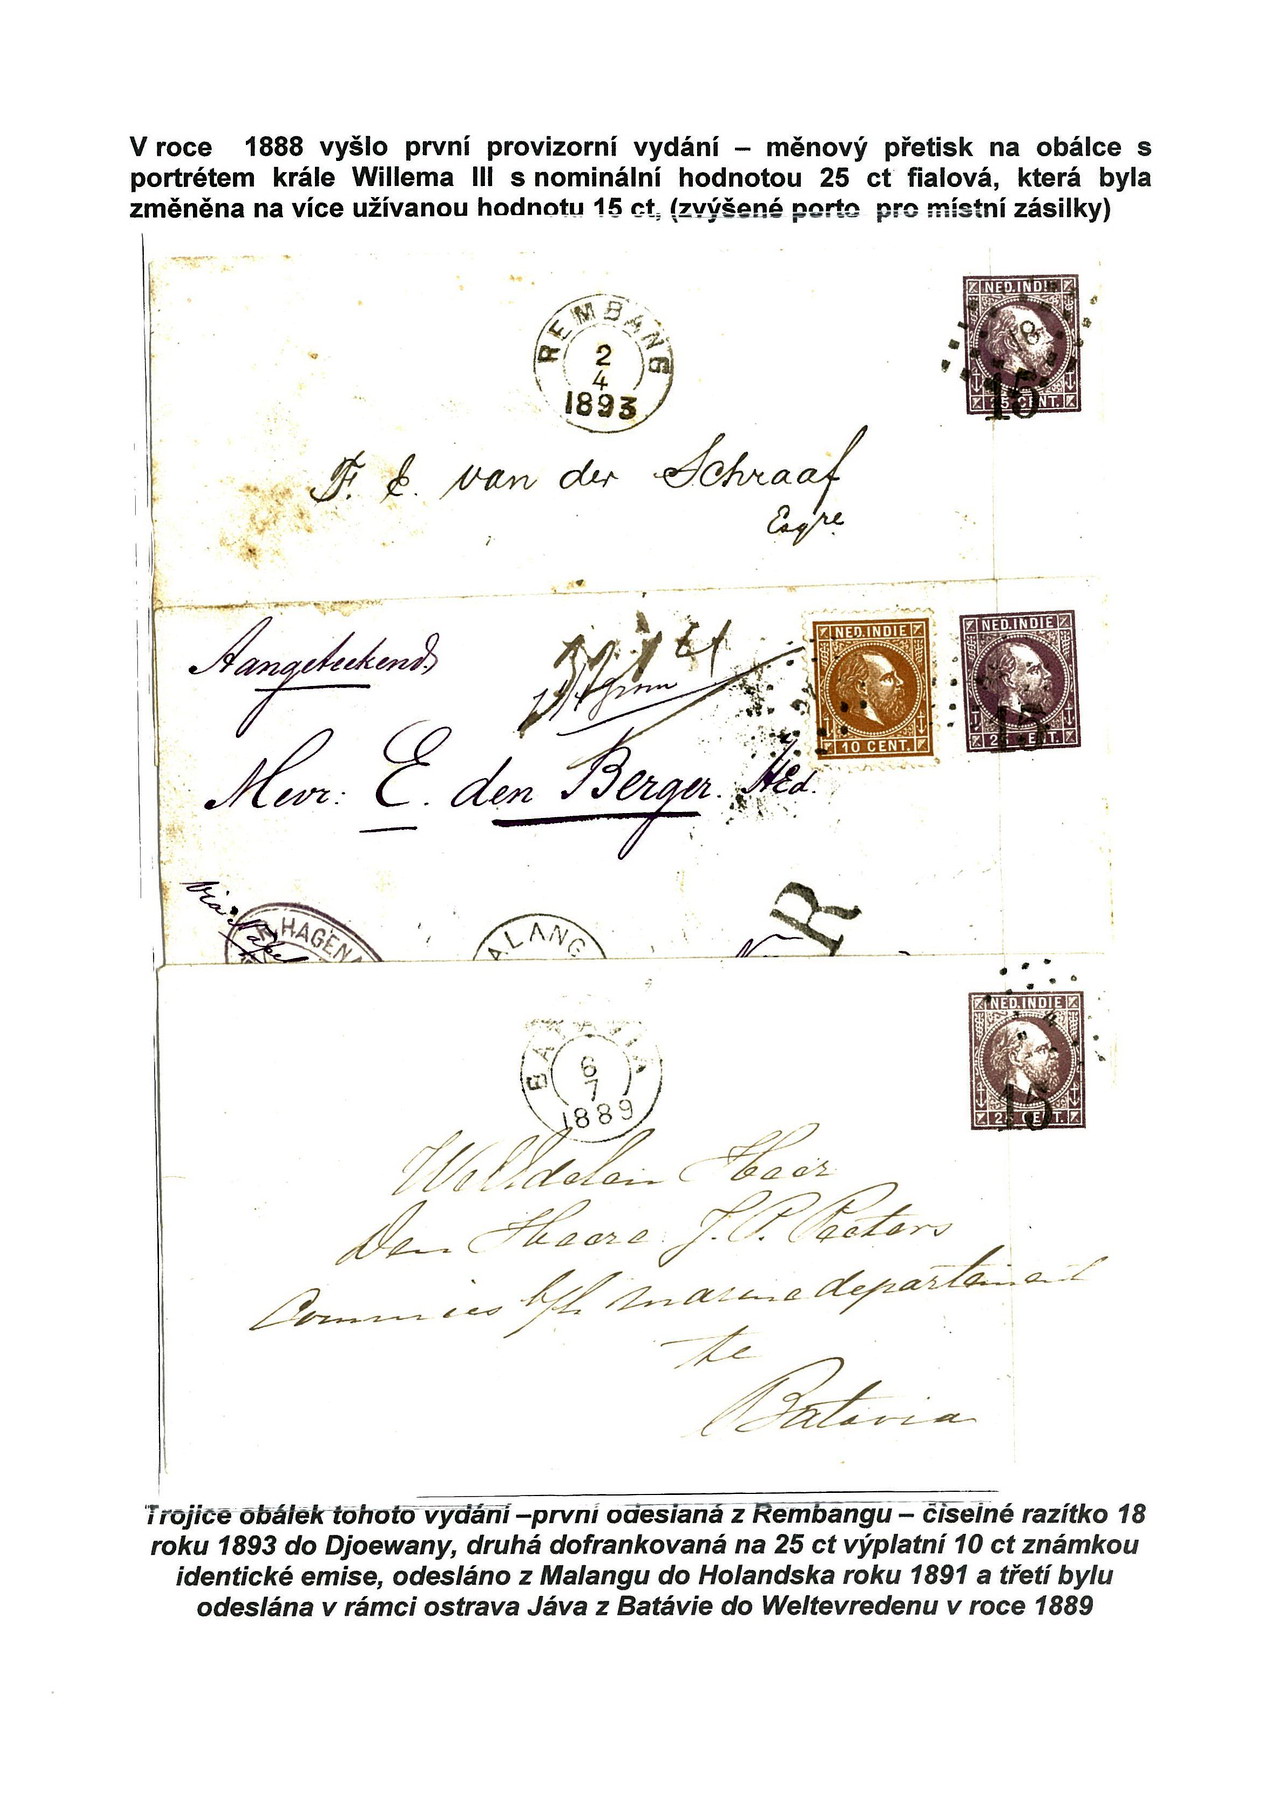 V roce 1888 vyšlo první provizorní vydání – měnový přetisk na obálce s
portrétem krále Willema III s nominální hodnotou 25 ct fialová, která byla
změněna na více užívanou hodnotu 15 ct, (zvýšené porto pro místní zásilky)
NED.INDIE
18
15
25 CENT.
REMBANG
2
4
1893
F. E. van der Schraaf
Esqre
Aangeteekend
NED.INDIE
10 CENT.
NED.INDIE
15
25 CENT.
Mevr: E. den Berger.
via Napels
HAGENA
ALANG
R
NED.INDIE
15
25 CENT.
BATAVIA
6
7
1889
WelEdelen Heer
Den Heere J. P. Peeters
Commies b/h marine departement
te
Batavia
Trojice obálek tohoto vydání –první odeslaná z Rembangu – číselné razítko 18
roku 1893 do Djoewany, druhá dofrankovaná na 25 ct výplatní 10 ct známkou
identické emise, odesláno z Malangu do Holandska roku 1891 a třetí bylu
odeslána v rámci ostrava Jáva z Batávie do Weltevredenu v roce 1889